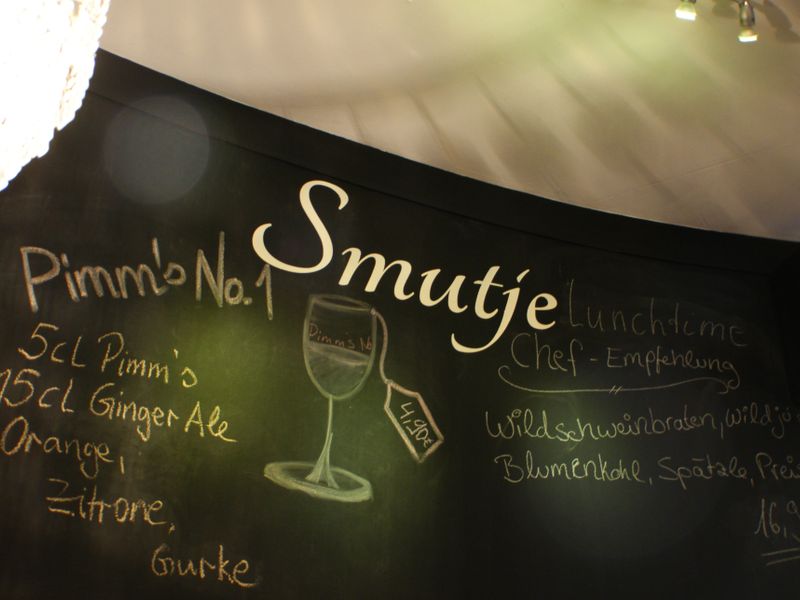 Smutje
Pimm's No.1
5cl Pimm's
15cl Ginger Ale
Orange,
Zitrone,
Gurke
Pimm's No
4,90€
Lunchtime
Chef-Empfehlung
Wildschweinbraten,
Blumenkohl, Spätzle,
16,9